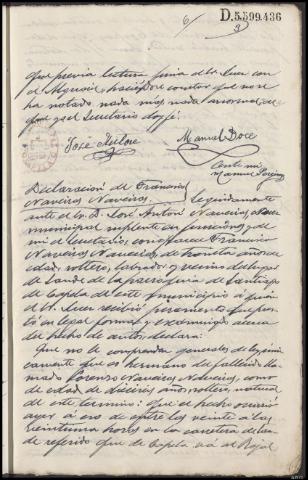 6/
D.5.599.436
3
que previa lectura firma el Sr. Juez con
el Alguacil, haciéndose constar que no se
ha notado nada mas nada anormal, de
que yo el Secretario doy fé.
José
Manuel Doce
Ante mi
Manuel
Declaracion de Francisco
Naveiras Naveiras. Seguidamente
ante el Sr. D. José Antonio Naveiras, Juez
municipal suplente en funciones, y de
mi el Secretario, comparece Francisco
Naveiras Naveiras, de treinta años de
edad, soltero, labrador y vecino del lugar
de de la parroquia de Santiago
de Capela de este municipio á quien
el Sr. Juez recibió juramento que pres-
tó en legal forma y examinado acerca
del hecho de autos, declara:
Que no le comprenden generales de la ley úni-
camente que es hermano del fallecido lla-
mado Naveiras Naveiras, como
de edad de años, soltero, natural
de este termino: que el hecho ocurrió
ayer á eso de entre las veinte a las
veintiuna horas en la carretera
de referido que de Capela vá al